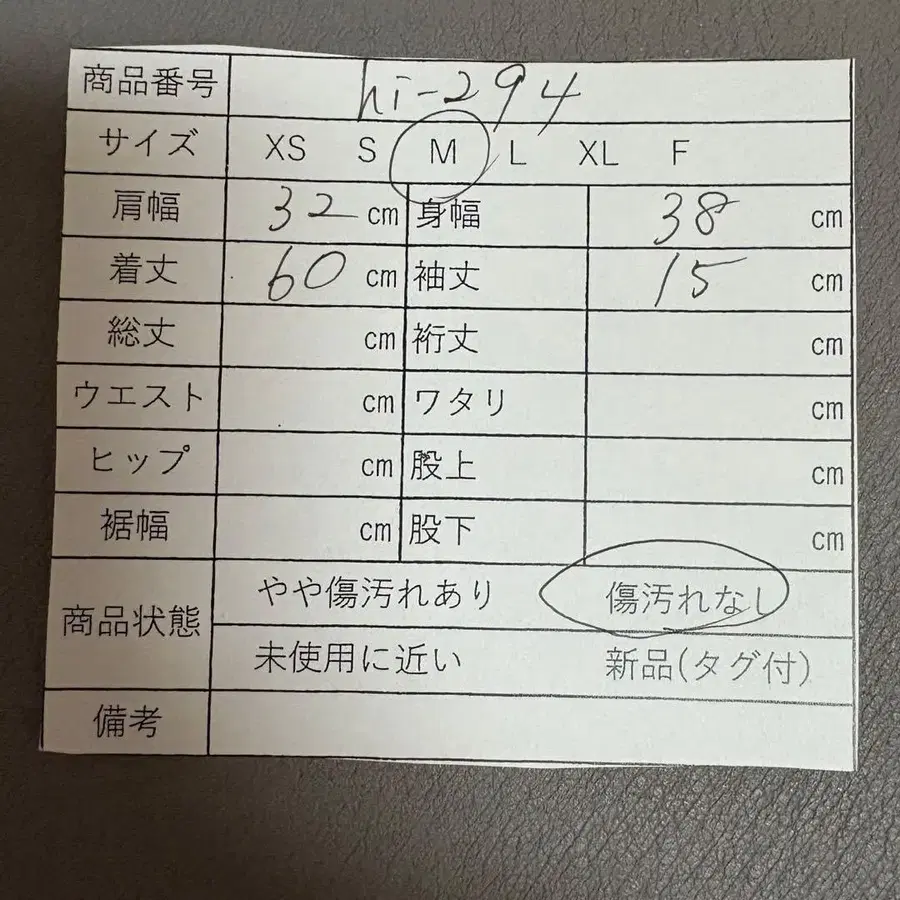 商品番号 hi-294
サイズ XS S M L XL F
肩幅 32 cm 身幅 38 cm
着丈 60 cm 袖丈 15 cm
総丈 cm 裄丈 cm
ウエスト cm ワタリ cm
ヒップ cm 股上 cm
裾幅 cm 股下 cm
商品状態 やや傷汚れあり 傷汚れなし
未使用に近い 新品(タグ付)
備考